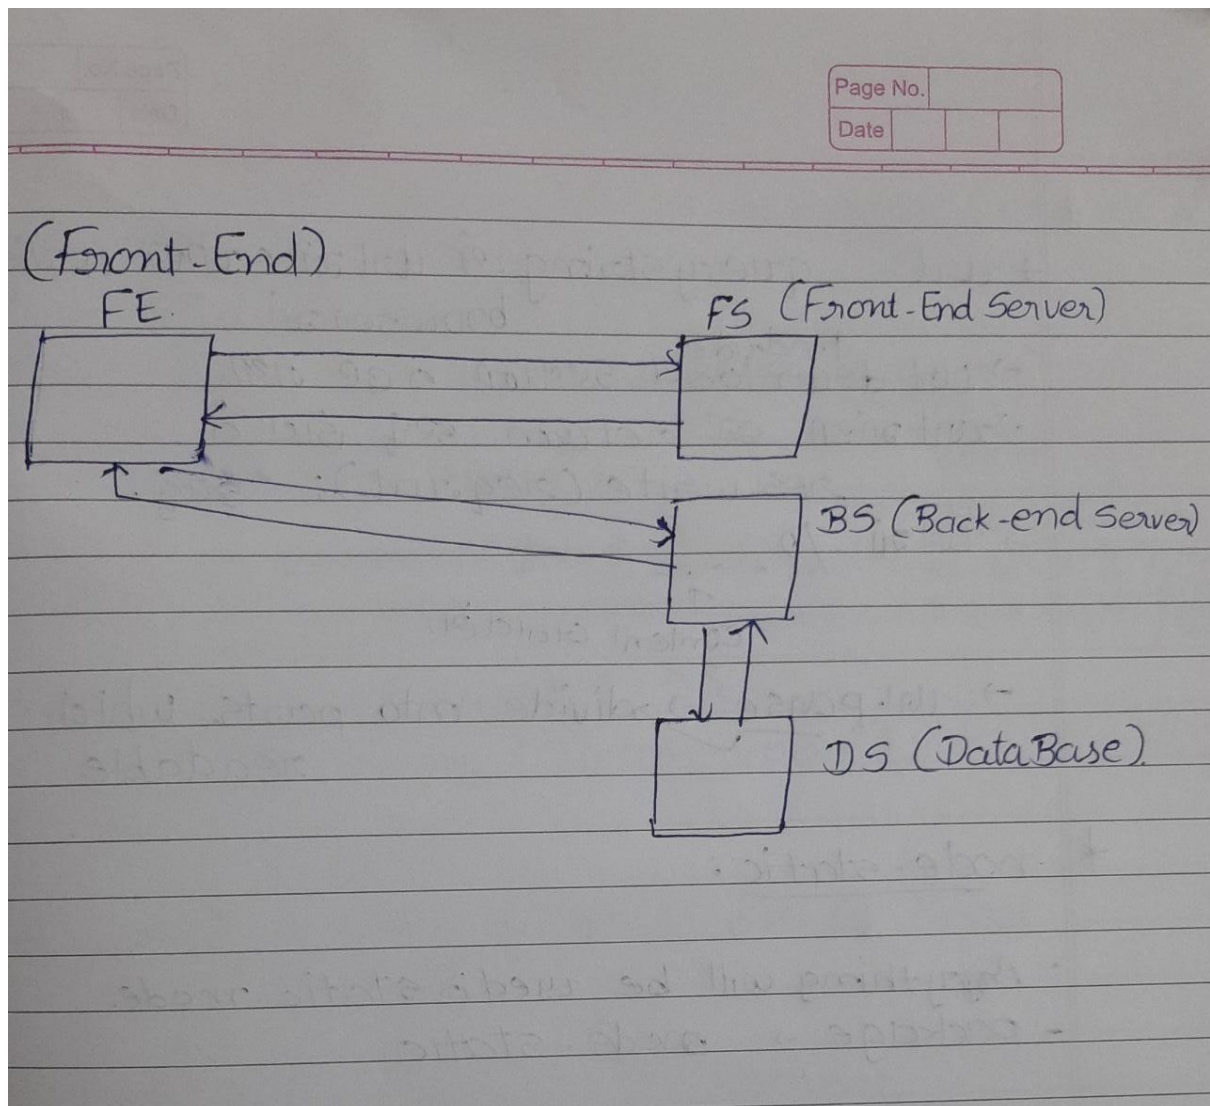 Page No.
Date
(Front-End)
FE.
FS (Front-End Server)
BS (Back-end Server)
DS (DataBase).